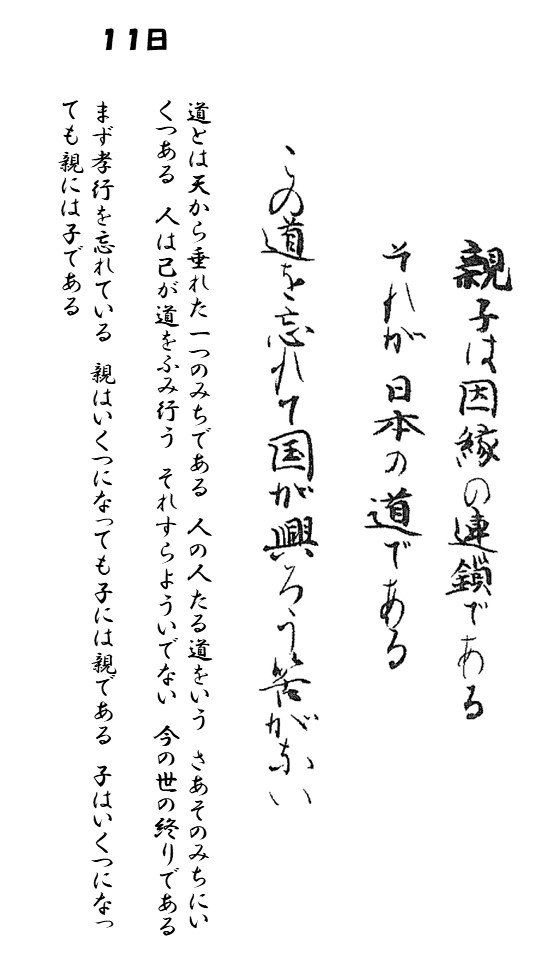 11日
親子は因縁の連鎖である
それが日本の道である
この道を忘れて国が興ろう筈がない
道とは天から垂れた一つのみちである　人の人たる道をいう　さあそのみちにい
くつある　人は己が道をふみ行う　それすらよういでない　今の世の終りである
まず孝行を忘れている　親はいくつになっても子には親である　子はいくつになっ
ても親には子である